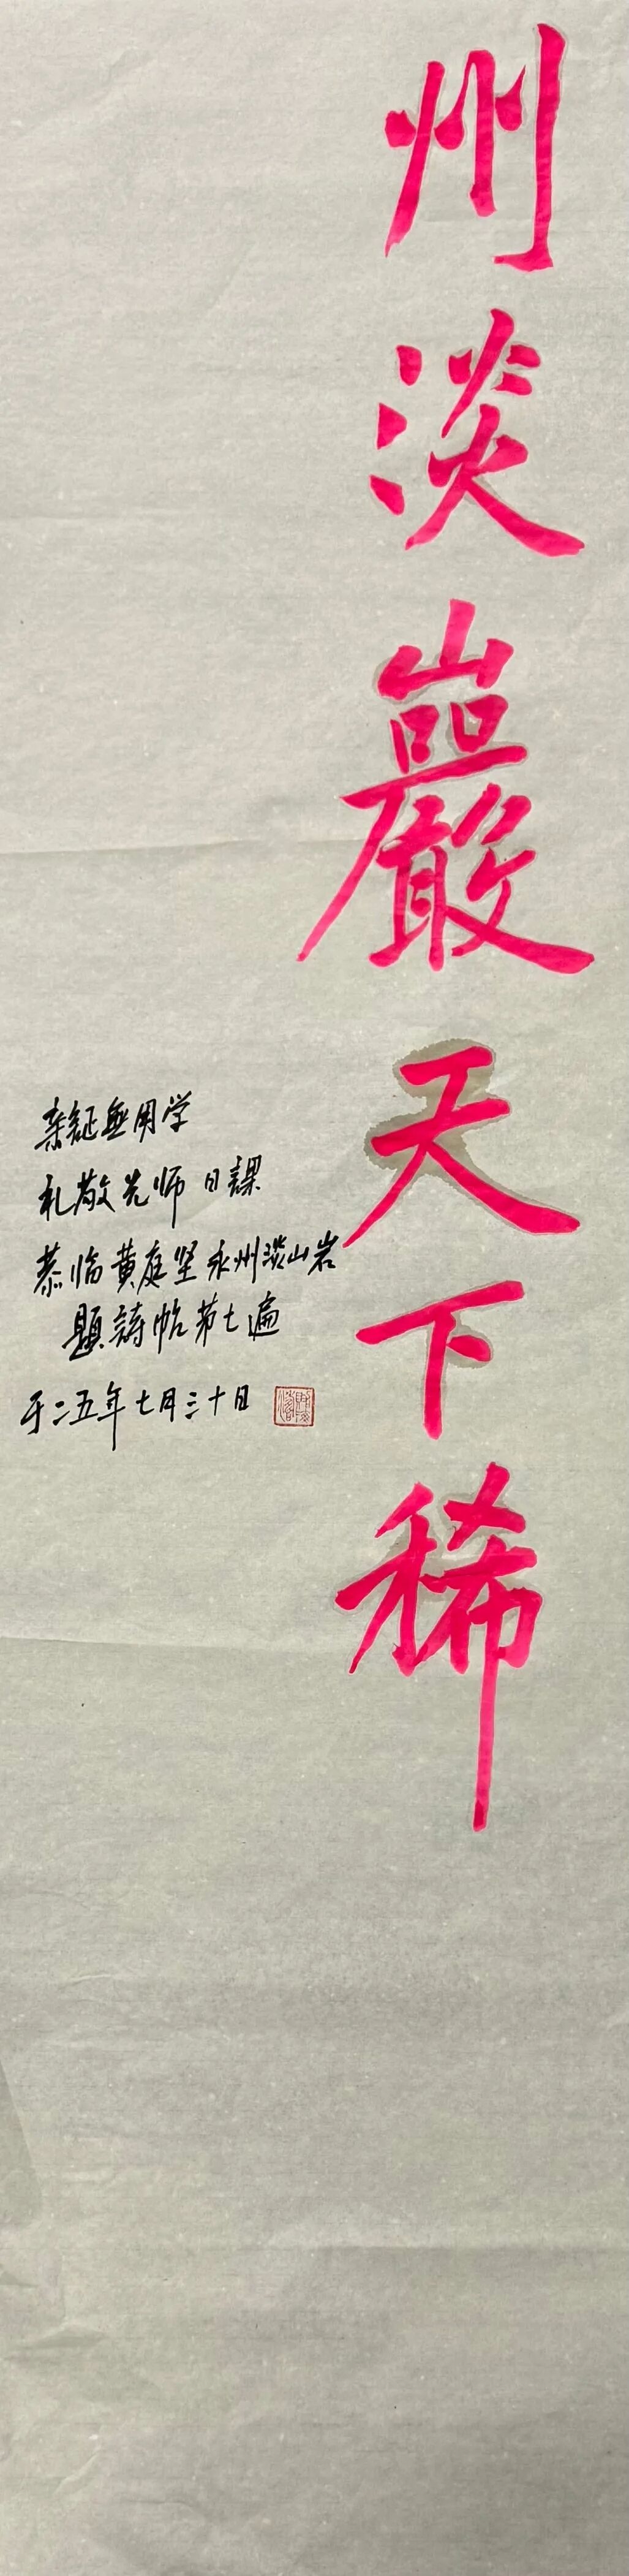 州淡巖天下稀
亲证無用学
礼敬先师 日課
恭临黄庭坚永州淡山岩
题詩帖第七遍
于二五年七月三十日